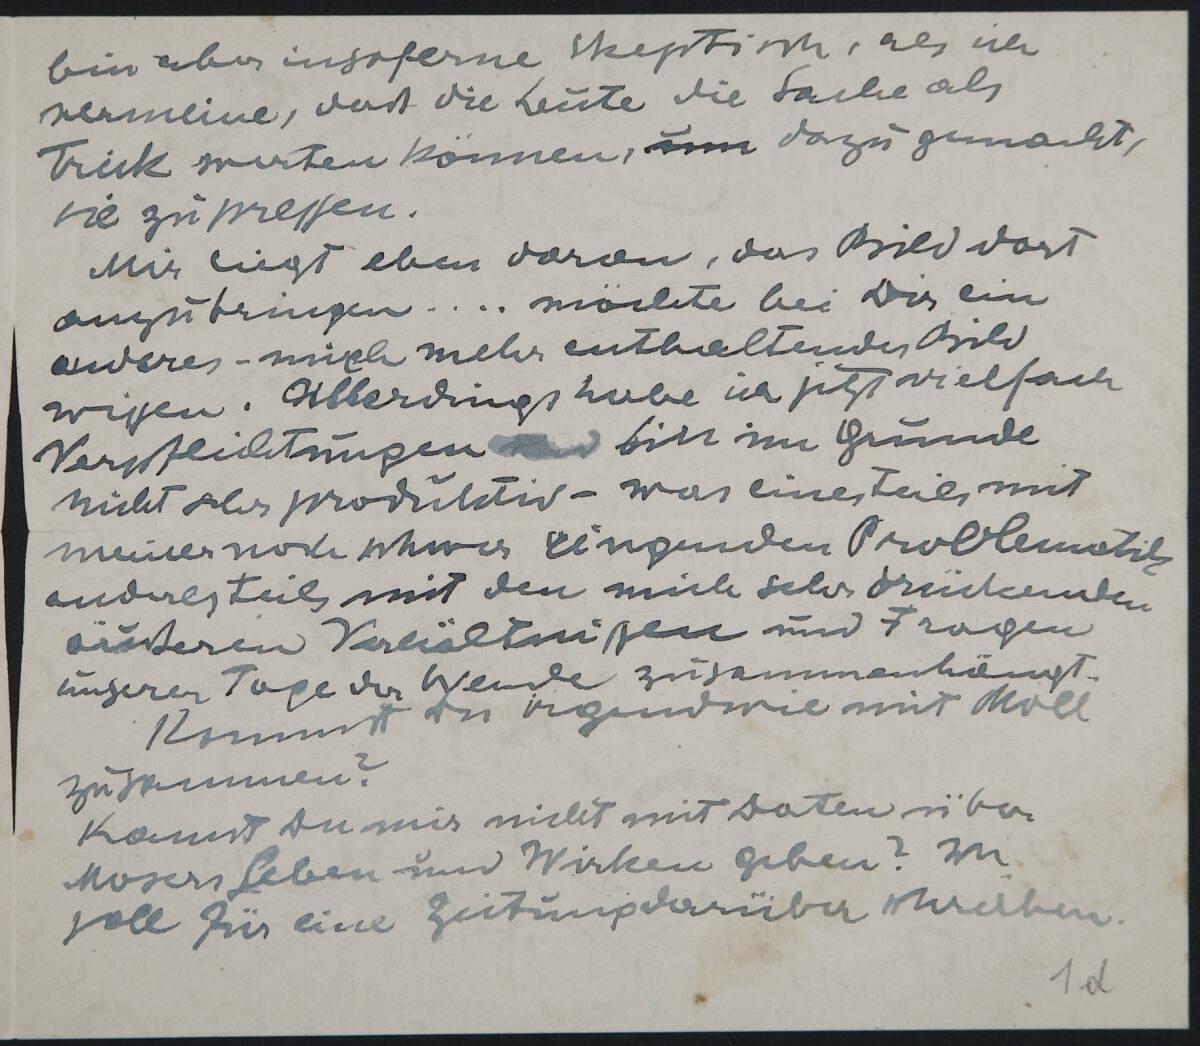 bin aber insoferne skeptisch, als ich
vermeine, dass die Leute die Sache als
Trick werten können, um dazu gemacht,
sie zu pressen.
Mir liegt eben daran, das Bild dort
anzubringen .... möchte bei Dir ein
anderes - mich mehr enthaltendes Bild
wissen. Allerdings habe ich jetzt vielfach
Verpflichtungen bin im Grunde
nicht sehr produktiv - was einesteils mit
meiner noch schwer ringenden Problematik
andersteils mit den mich sehr drückenden
äusseren Verhältnissen und Fragen
unserer Tage der Wende zusammenhängt.
Kommst Du irgendwie mit Moll
zusammen?
Kannst Du mir nicht mit Daten über
Mosers Leben und Wirken geben?
soll für eine Zeitung darüber schreiben.
1d